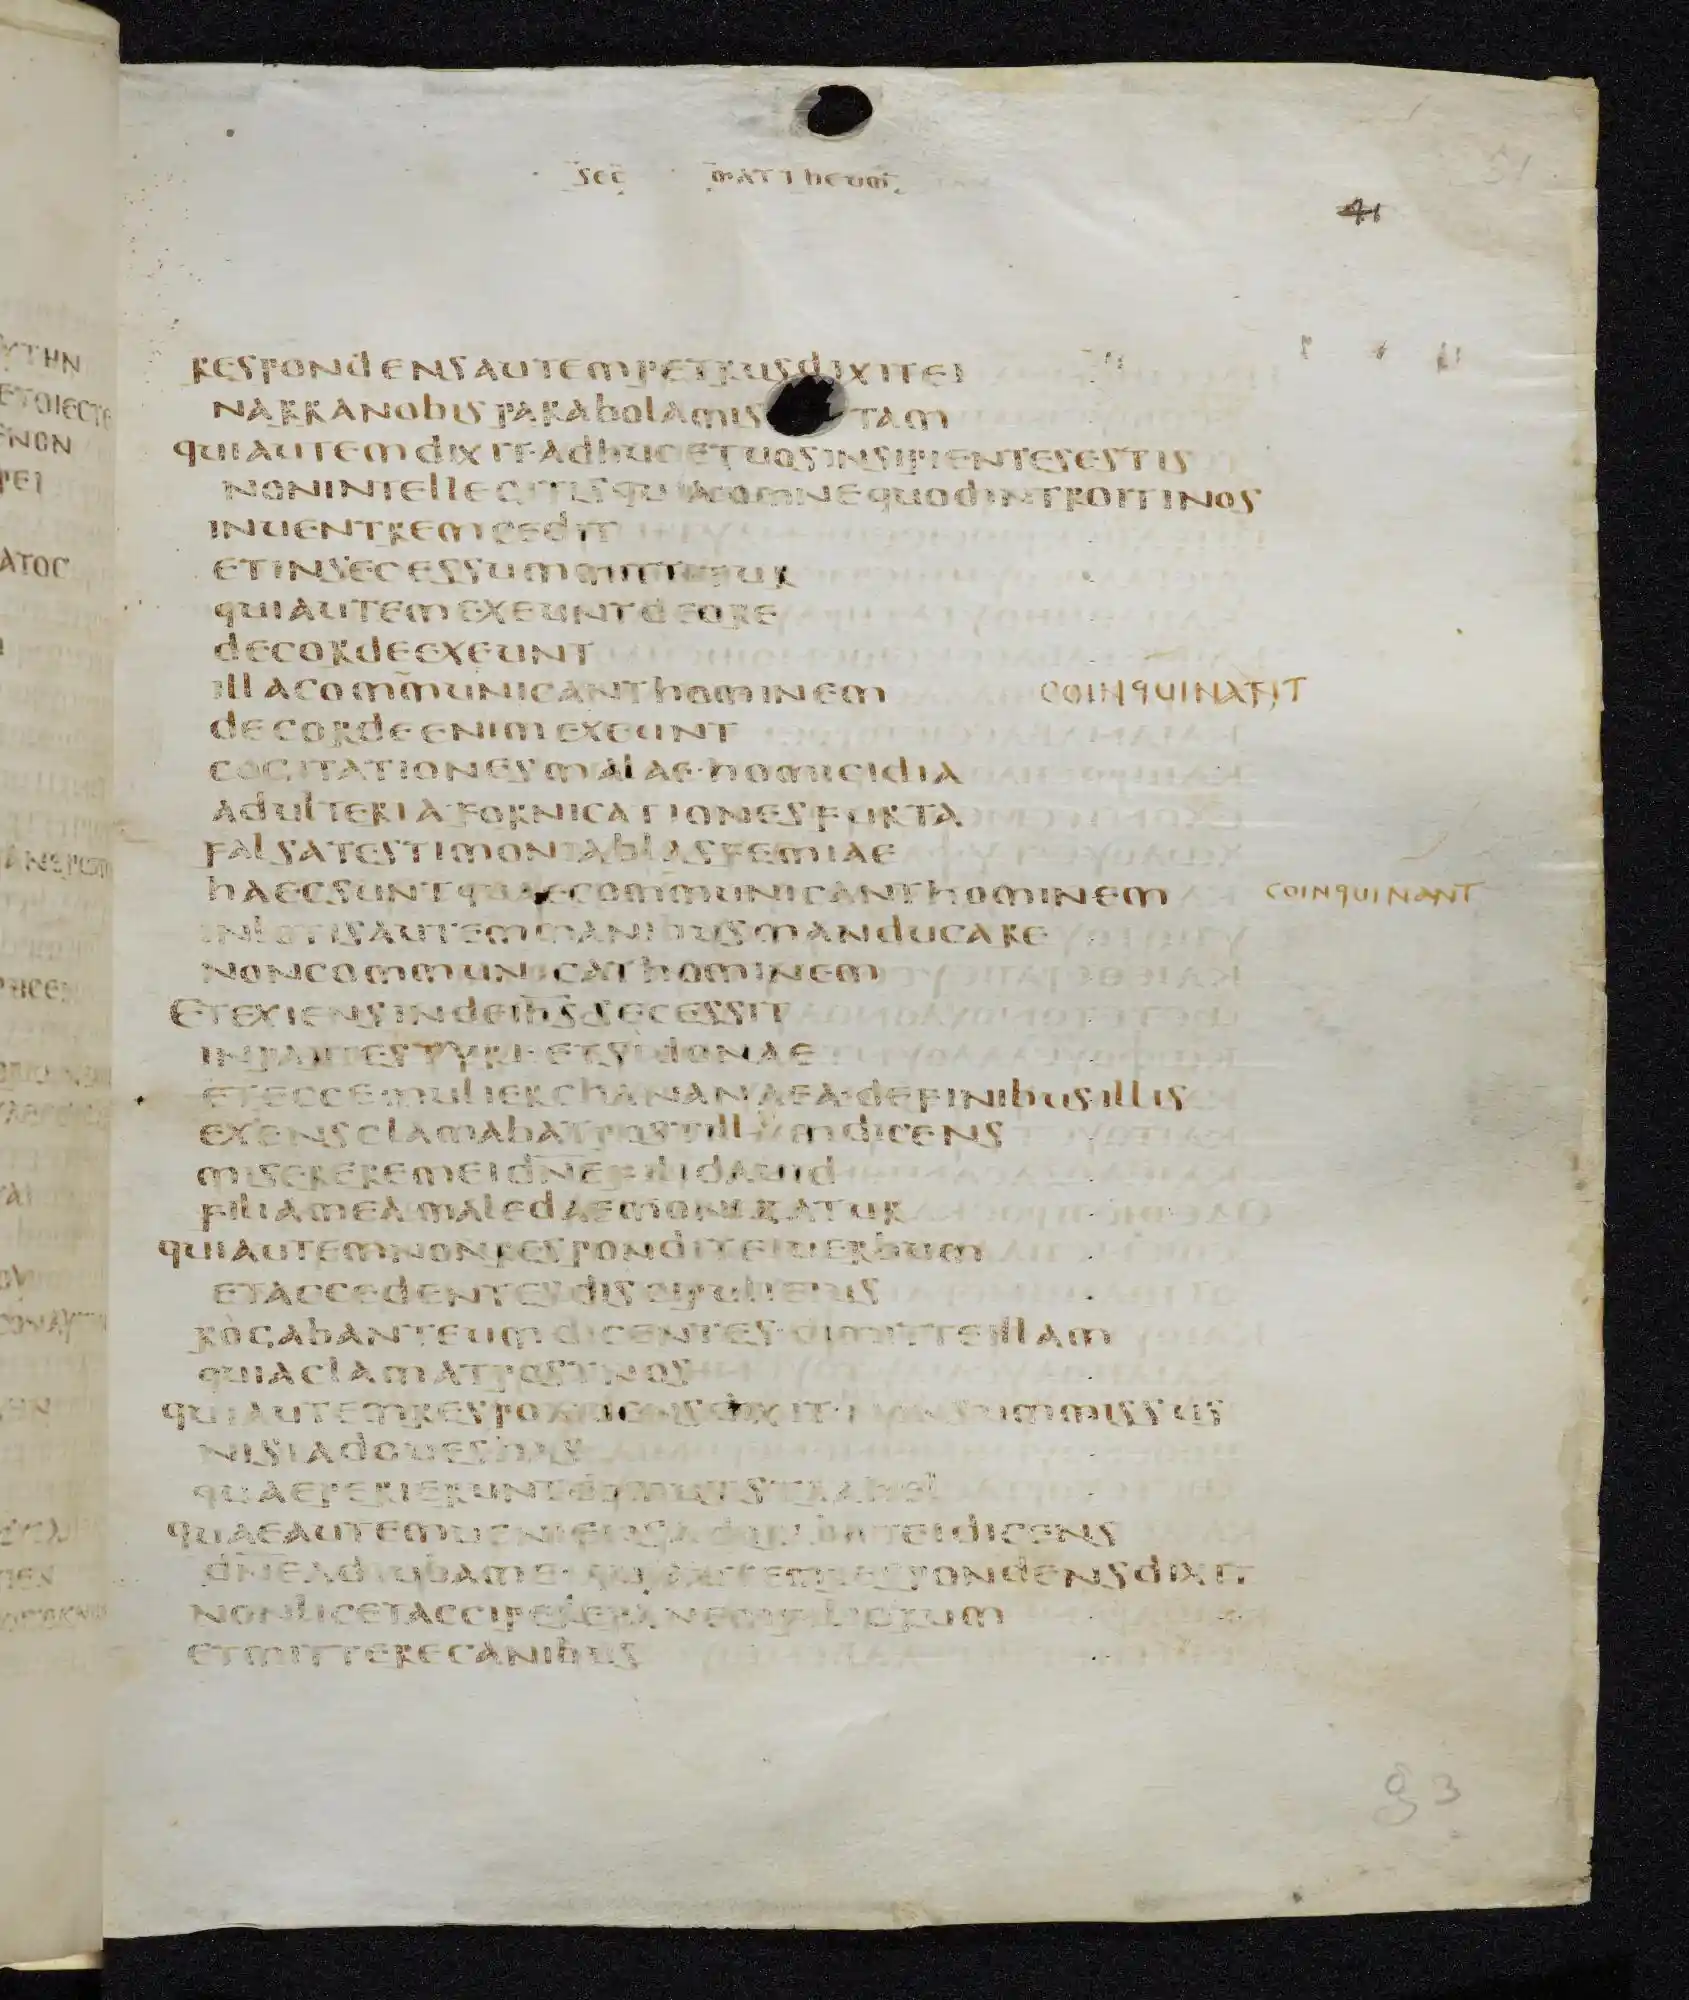 SEC MATTHEUM
51
41
RESPONDENSAUTEMPETRUSDIXITEI
NARRANOBISPARABOLAMISTAM
QUIAUTEMDIXIT·ADHUCETUOSINSIPIENTESESTIS
NONINTELLEGITISQUIAOMNEQUODINTROITINOS
INUENTREMCEDIT
ETINSECESSUMMITTITUR
QUIAUTEMEXEUNTDEORE
DECORDEEXEUNT
ILLACOMMUNICANTHOMINEM COINQUINANT
DECORDEENIMEXEUNT
COGITATIONESMALAE·HOMICIDIA
ADULTERIA·FORNICATIONESFURTA
FALSATESTIMONIABLASFEMIAE
HAECSUNTQUAECOMMUNICANTHOMINEM COINQUINANT
INLOTISAUTEMMANIBUSMANDUCARE
NONCOMMUNICATHOMINEM
ETEXIENSINDEIHSSECESSIT
INPARTESTYRI·ETSYDONAE
ETECCE·MULIERCHANANAEA·DEFINIBUSILLIS
EXIENSCLAMABATPOSTILLUMDICENS
MISEREREMEIDNEFILIDAUID
FILIAMEAMALEDAEMONIZATUR
QUIAUTEMNONRESPONDITEIUERBUM
ETACCEDENTESDISCIPULIEIUS
ROGABANTEUMDICENTES·DIMITTEILLAM
QUIACLAMATPOSTNOS
QUIAUTEMRESPONDENSDIXIT·NONSUMMISSUS
NISIADOUESHAS
QUAEPERIERUNTDOMUSISTRAHEL
QUAEAUTEMUENIENSADORABATEIDICENS
DNEADIUBAME·QUIAUTEMRESPONDENSDIXIT
NONLICETACCIPEREPANEMFILIORUM
ETMITTERECANIBUS
g 3